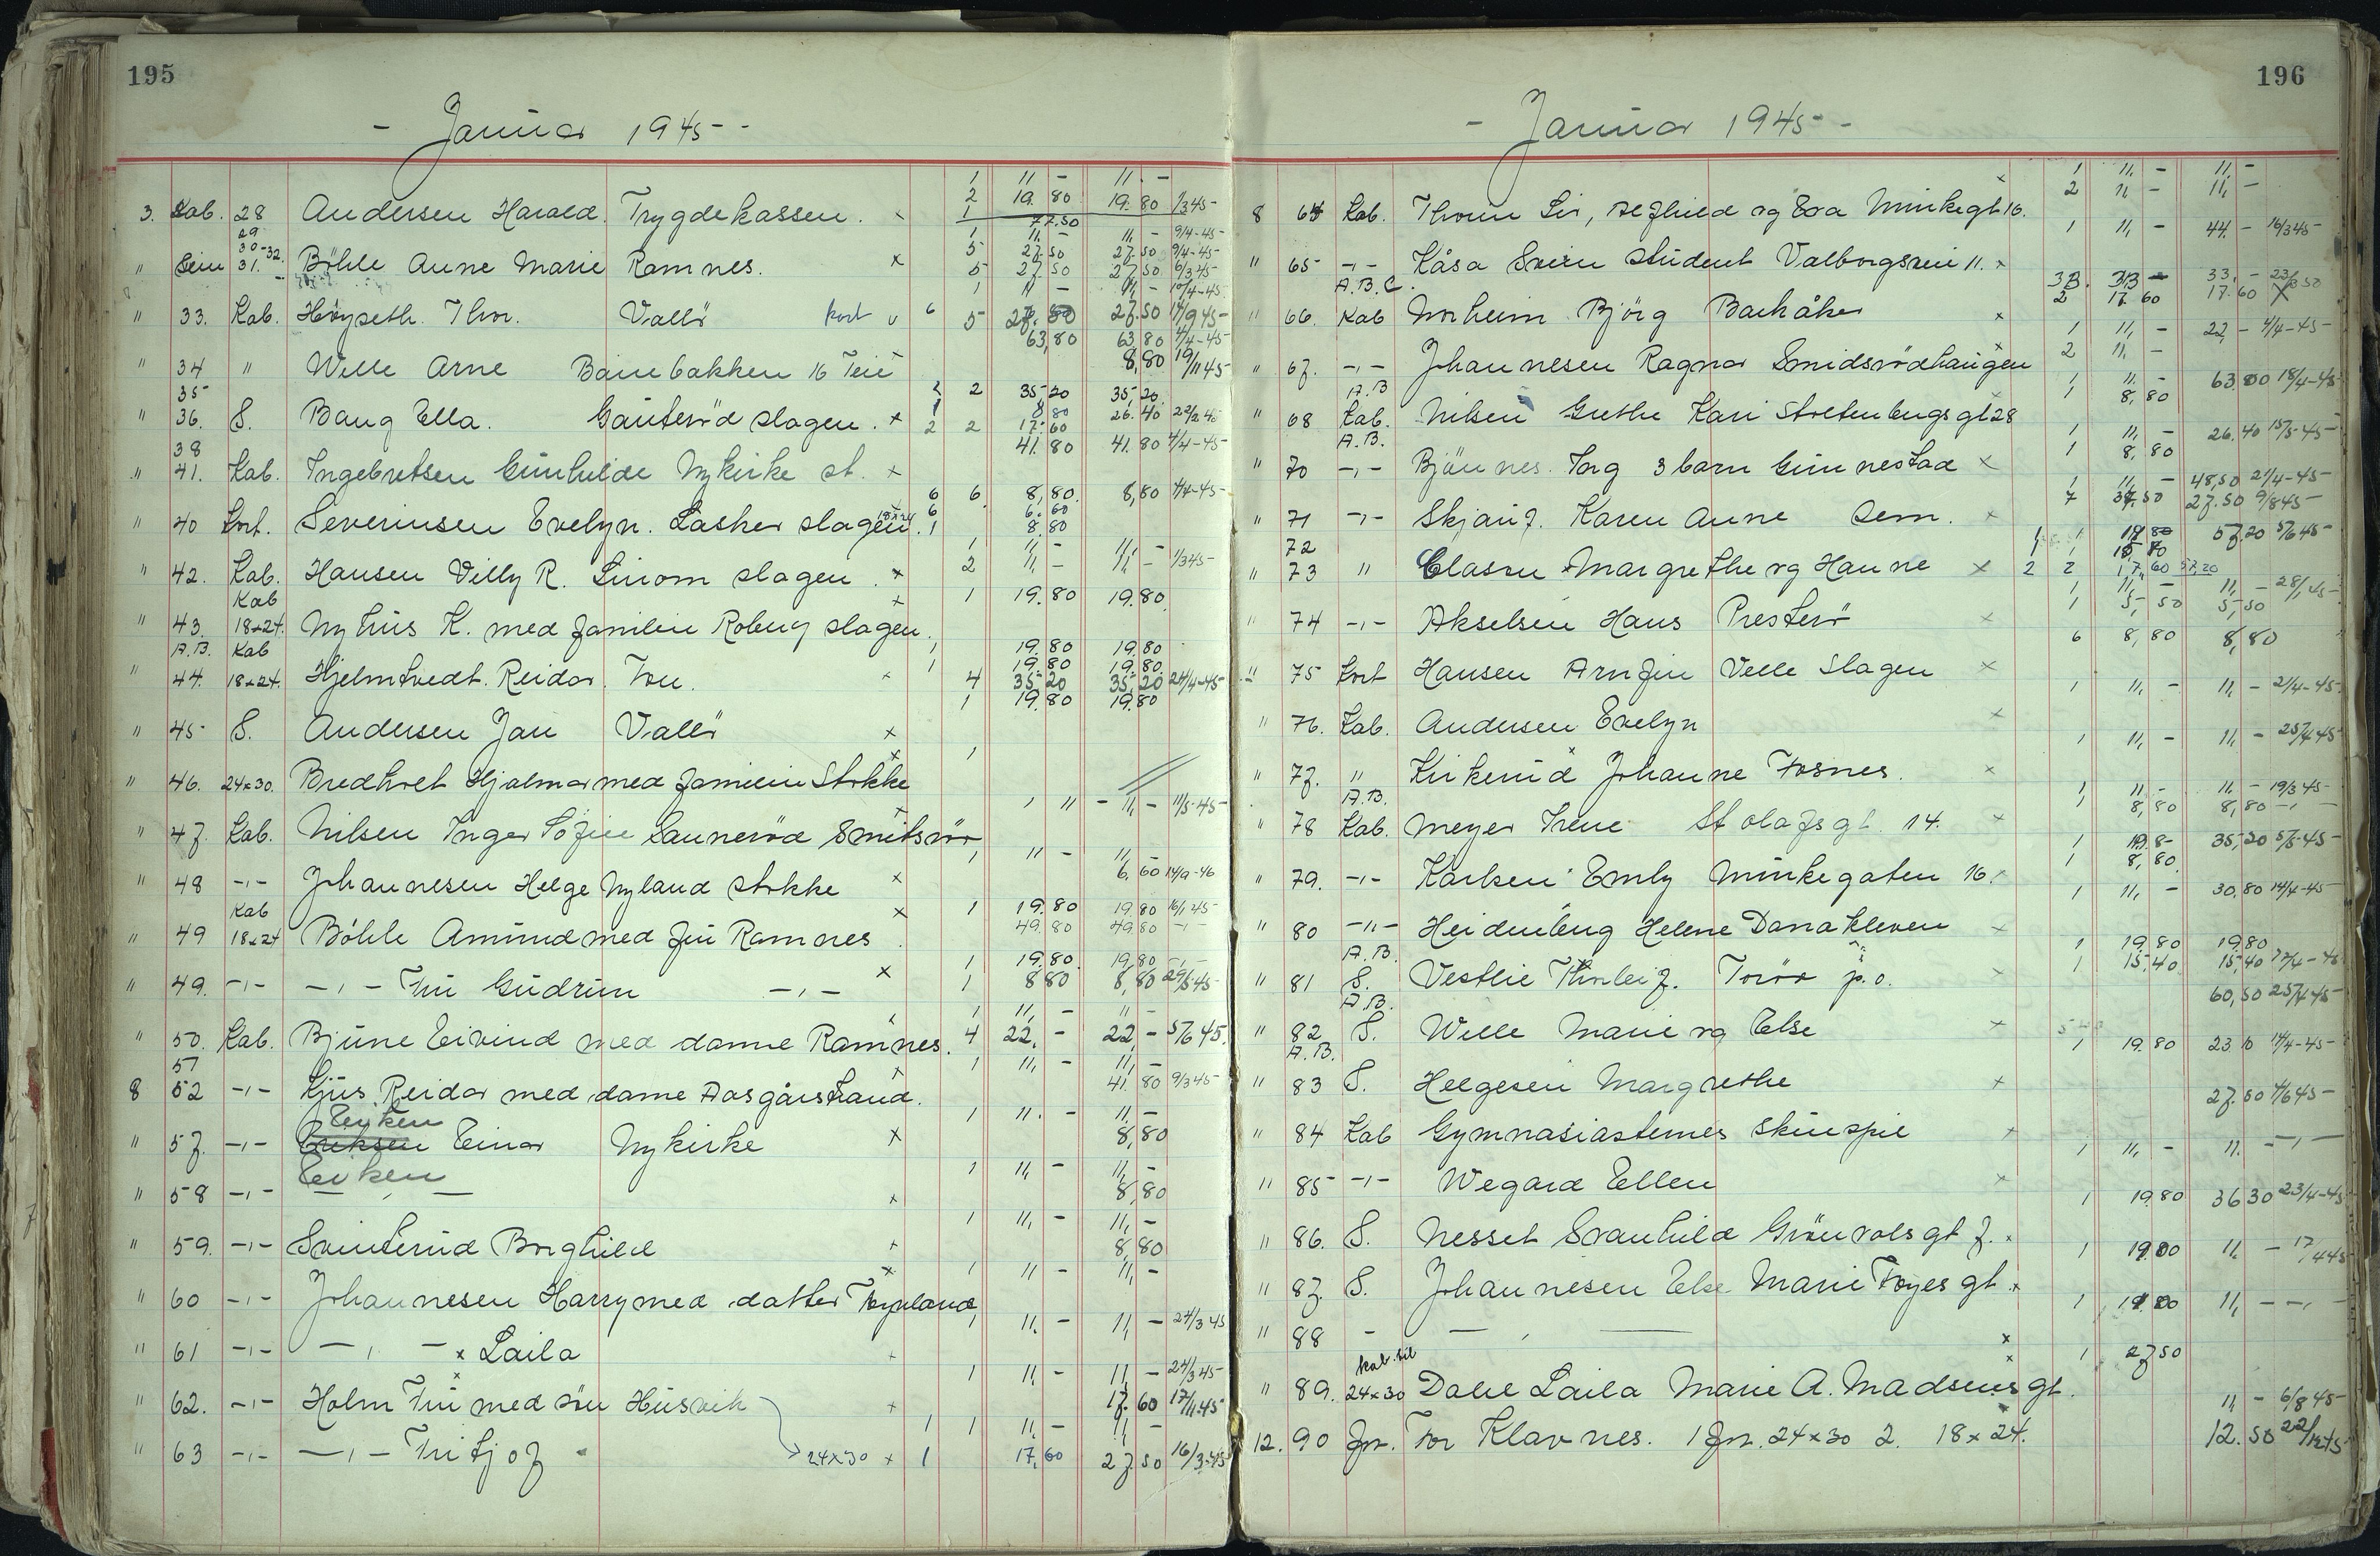 195
- Januar 1945 -
1 11 - 11. -
2 19.80 19.80 1/3 45-
3. Kab. 28 Andersen Harald. Trygdekassen. x 1 77.50
29 1 11. - 11. - 9/4-45-
30-32. 5 27.50 27.50 9/4-45-
" 31. Böhle Anne Marie Ramnes. x 5 27.50 27.50 6/3 45-
1 11 - 11 - 10/4-45-
" 33. Kab. Höyseth. Thor. Vallö kort v 6 5 27.50 14/9 45-
63,80 63,80 4/4-45-
8,80 19/11 45-
" 34 " Wille Arne Bainbakken 16 Teie
35- 2 35,20 35,20
8,80 26.40 22/2 45
" 36. S. Bang Ella. Gauteröd slagen. x 2 2 17.60
38 41.80 41.80 4/4-45-
" 41. Kab. Ingebretsen Gunhilde Nykirke st. x
6 6 8,80. 8,80 4/4-45-
6 6.60
" 40 Kort. Severinsen Evelyn. Lasken slagen. 1 8.80
1 11 - 11, -
2 11, - 11, - 1/3 45-
" 42. Kab. Hansen Villy R. Linom slagen. x
Kab x 1 19.80 19.80
" 43. 18x24. Nyhus K. med familie Roberg slagen.
A.B. Kab 1 19.80 19.80
1 19.80 19.80
" 44. 18x24. Hjelmtvedt. Reidar. Tou. x 4 35.20 35.20 24/4-45-
1 19.80 19.80
" 45- S. Andersen Jan Vallö x
x 1
" 46. 24x30. Bredtvet Hjalmar med familie Stokke
x 1 11 - 11, - 11/5-45-
" 47. Kab. Nilsen Inger Sofie Launeröd Smitsrör
1 11 - 11. -
6.60 14/9-46
" 48 -"- Johannesen Helge Nyland stokke x
Kab x 1 19.80 19.80 16/1 45-
49.80 49.80 -"-
" 49 18x24 Böhle Amund med fru Ramnes.
1 19.80. 19.80 -"-
x 1 8.80 8,80 29/5-45-
" 49. -"- -"- Fru Gudrun -"-
1 11, - 11 -
" 50. Kab. Bjune Eivind med dame Ramnes. 4 22, - 22, - 5/6 45.
51 x 1 11, - 11, -
41.80 9/3 45-
8 52 -"- Kjus Reidar med dame Aasgårstrand.
Eiken 1 11. - 11, -
8,80
" 57. -"- Eriksen Einar Nykirke x
Eiken 1 11, - 11, -
8,80
" 58 -"- — " — x
1 11, - 11, -
" 59. -"- Svinterud Borghild x 8,80
x 1 11 - 11, -
" 60 -"- Johannesen Harry med datter Töynland
1 11. - 11, - 24/3 45
" 61 -"- -"- x Laila x
1 11, - 11, - 24/3 45-
" 62. -"- Holm Fru med sön Husvik x 17.60 17/11.45-
1 1 11, - 11, -
" 63 -"- -"- Fritjof 24x30 x 1 17.60 27.50 16/3-45
196
- Januar 1945 -
1 11, - 11, -
x 2 11 - 11, -
8 64 Kab. Thoun Siv, Alfhild og Eva Munkegt 16.
1 11, - 44. - 16/3 45-
" 65- -"- Kåsa Svein student Valborgsvei 11. x
A.B.C. 3B. 33 - 33, - 23/8 50
2 17.60 17.60 X
" 66. Kab Norheim Björg Barkåker x
1 11, - 22, - 4/4-45-
2 11, -
" 67. -"- Johannesen Ragnar Smidsrödhaugen
A.B 1 11. - 63.80 18/4-45
1 8,80
" 68 Kab. Nilsen Grethe Kari Stoltenbergs gt 28
A.B. 1 11, - 26.40 15/5-45-
1 8,80
" 70 -"- Bjönnes. Torg 3 barn Gunnestad x
1 11, - 48,50 21/4-45-
7 37.50 27.50 9/8 45-
" 71 -"- Skjauf. Karen Anne Sem. x
72 1 1 19 80 57.20 5/6 45-
" 73 " Classen Margrethe og Hanne x 2 2 17,60 57,20
1 11, - 11, - 28/1 45-
1 5,50 5,50
" 74 -"- Akselsen Hans Presterö x
6 8,80 8,80
" 75 Kort Hansen Arnfin Velle Slagen x
1 11, - 11, - 21/4-45-
" 76. Kab. Andersen Evelyn x
1 11, - 11, - 25/4 45
" 77. " Kirkerud Johanne Fosnes. x
A.B. 1 11 - 11, - 19/3 45
1 8,80 8,80 -"-
" 78 Kab. Meyer Irene St olafsgt. 14. x
1 19.8- 35,20 5/5-45-
1 8,80.
" 79. -"- Karlsen Emly Munkegaten 16.
1 11, - 30,80 14/4-45-
" 80 -"- Heidenberg Helene Danakleven x
A.B. 1 19.80 19.80
1 15,40 15,40
" 81 S. Vestlie Thorleif. Torör p.o. x
A.B. 60,50 25/4 45-
" 82 S. Wille Marie og Else x
A.B. 1 19.80 23 10 14/4-45-
" 83 S. Helgesen Margrethe x
27.50 4/6 45-
" 84 Kab Gymnasiasternes skuespil x
1 11, - 11. - -"-
" 85- -"- Wegard Ellen x
1 19.80 36 30 23/4-45
" 86. S. Nesset Svanhild Grönvolsgt 7. x
1 19.80 11. - 17/4 45
" 87. S. Johannesen Else Marie Föyesgt x
1 19.80 11, - -"-
" 88 - — " —
kab. bil x 1 27 50
" 89. 24x30 Dahl Laila Marie A. Madsensgt.
11, - 6/8 45-
12. 90 fr. For Klavnes. 1 fr. 24x30 2. 18x24. 12.50 22/12 45